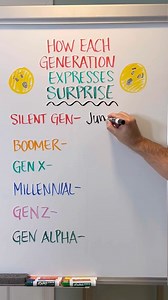 HOW EACH
GENERATION
EXPRESSES
SURPRISE
SILENT GEN- Jum
BOOMER-
GEN X-
MILLENNIAL-
GEN Z-
GEN ALPHA-